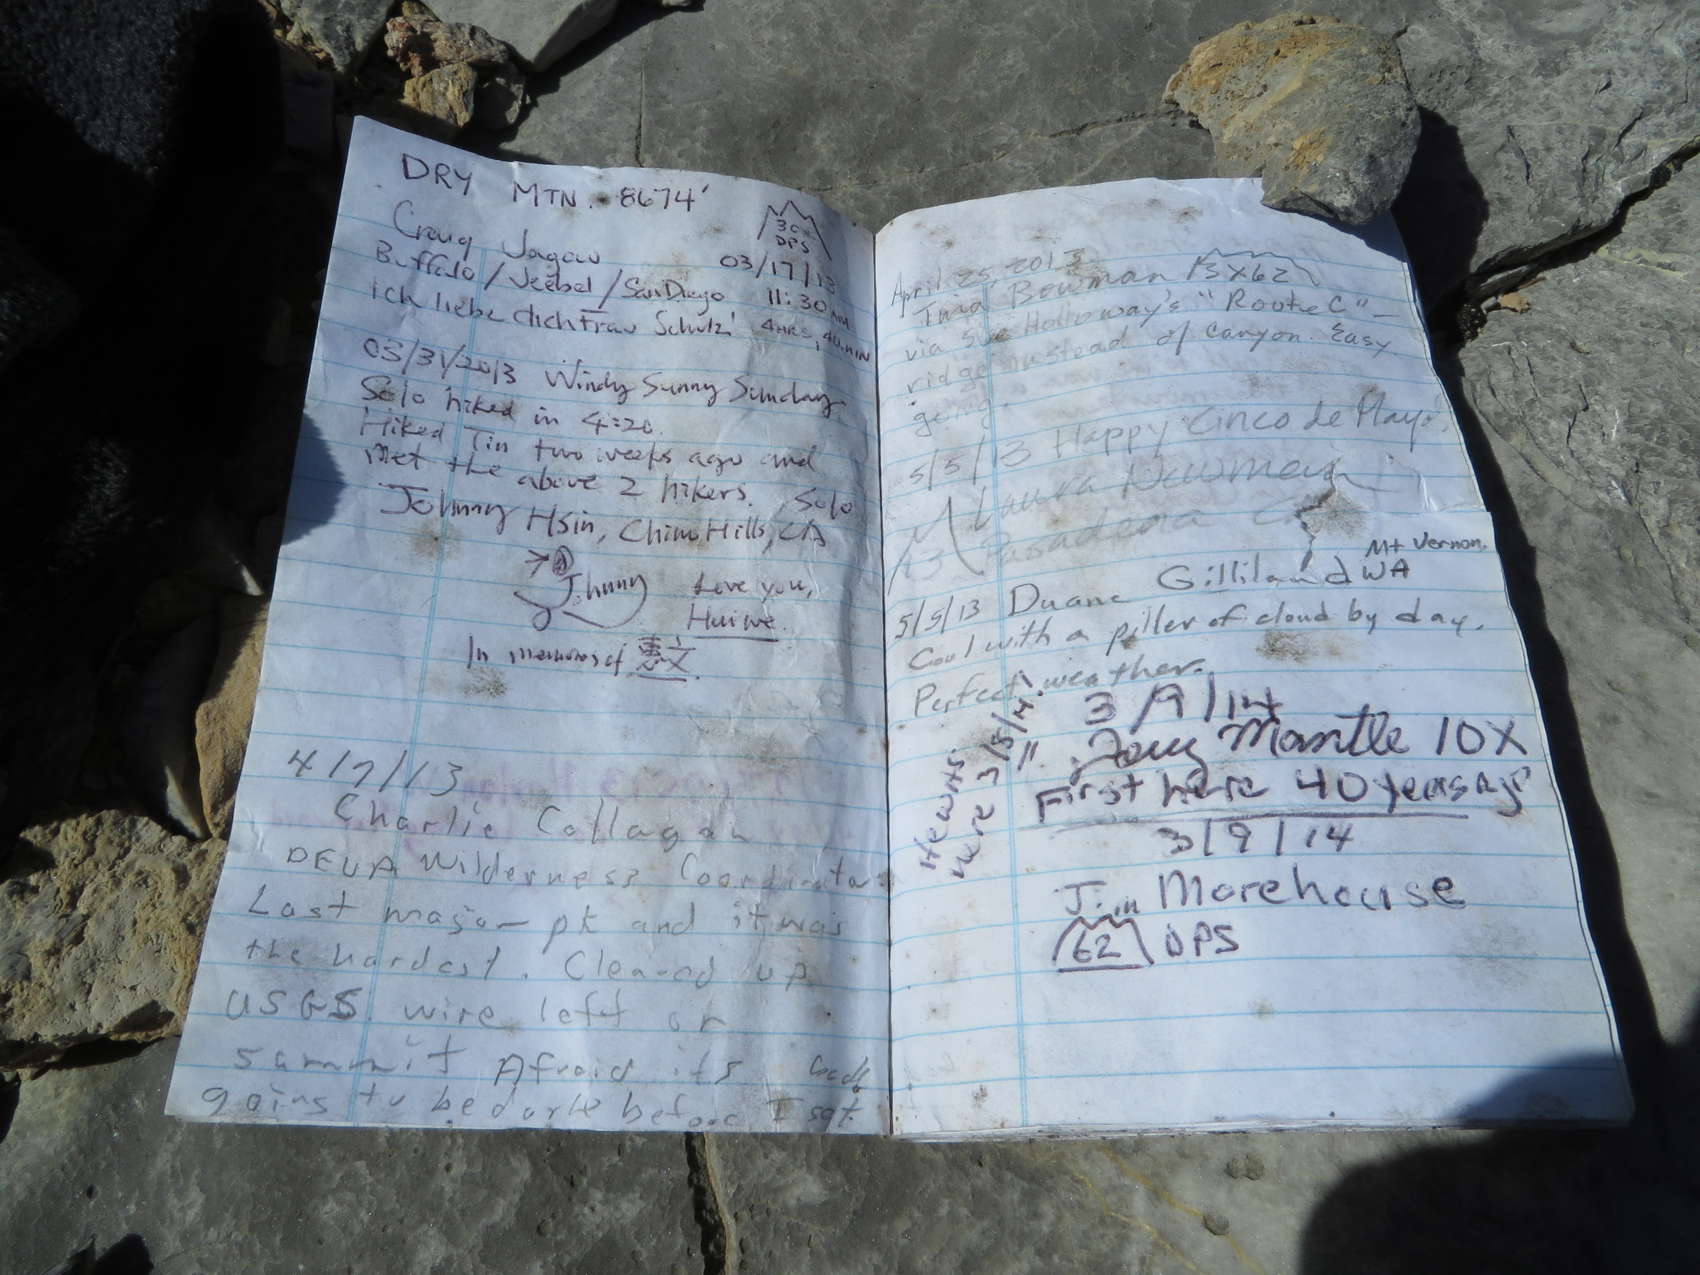 DRY MTN. 8674'
30
DPS
Craig Jagow 03/17/13
Buffalo / Jeebel / San Diego 11:30 AM
ich liebe dich Frau Schulz! 4HRS, 40MIN
03/31/2013 Windy Sunny Sunday
Solo hiked in 4:20.
Hiked Tin two weeks ago and
met the above 2 hikers. Solo
Johnny Hsin, Chino Hills, CA
Johnny Love you,
In memories of
4/7/13
Charlie Callagan
DEVA Wilderness Coordinator
Last major pk and it was
the hardest. Cleaned up
USGS wire left on
summit Afraid its
going to be dark before I get
April 25, 2013
Tina Bowman 5x62
via Sue Holloway's "Route C" –
ridge instead of canyon. Easy
going.
5/5/13 Happy Cinco de Mayo!
Laura Newman
Pasadena CA
13
5/5/13 Duane Gilliland Mt Vernon, WA
Cool with a piller of cloud by day.
Perfect weather.
here 3/5/14!
3/9/14
Mantle 10X
First here 40 years ago
3/9/14
Jim Morehouse
62 DPS